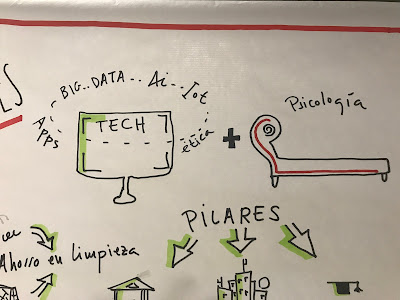 ES
BIG..DATA... Ai...Iot
Apps
TECH
ética
+
Psicología
PILARES
Ahorro en limpieza